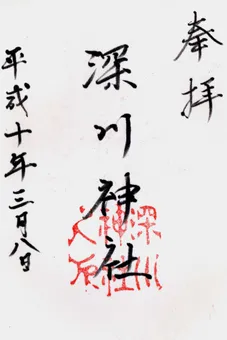 奉拝
深川神社
平成十年三月八日
深川神社之印